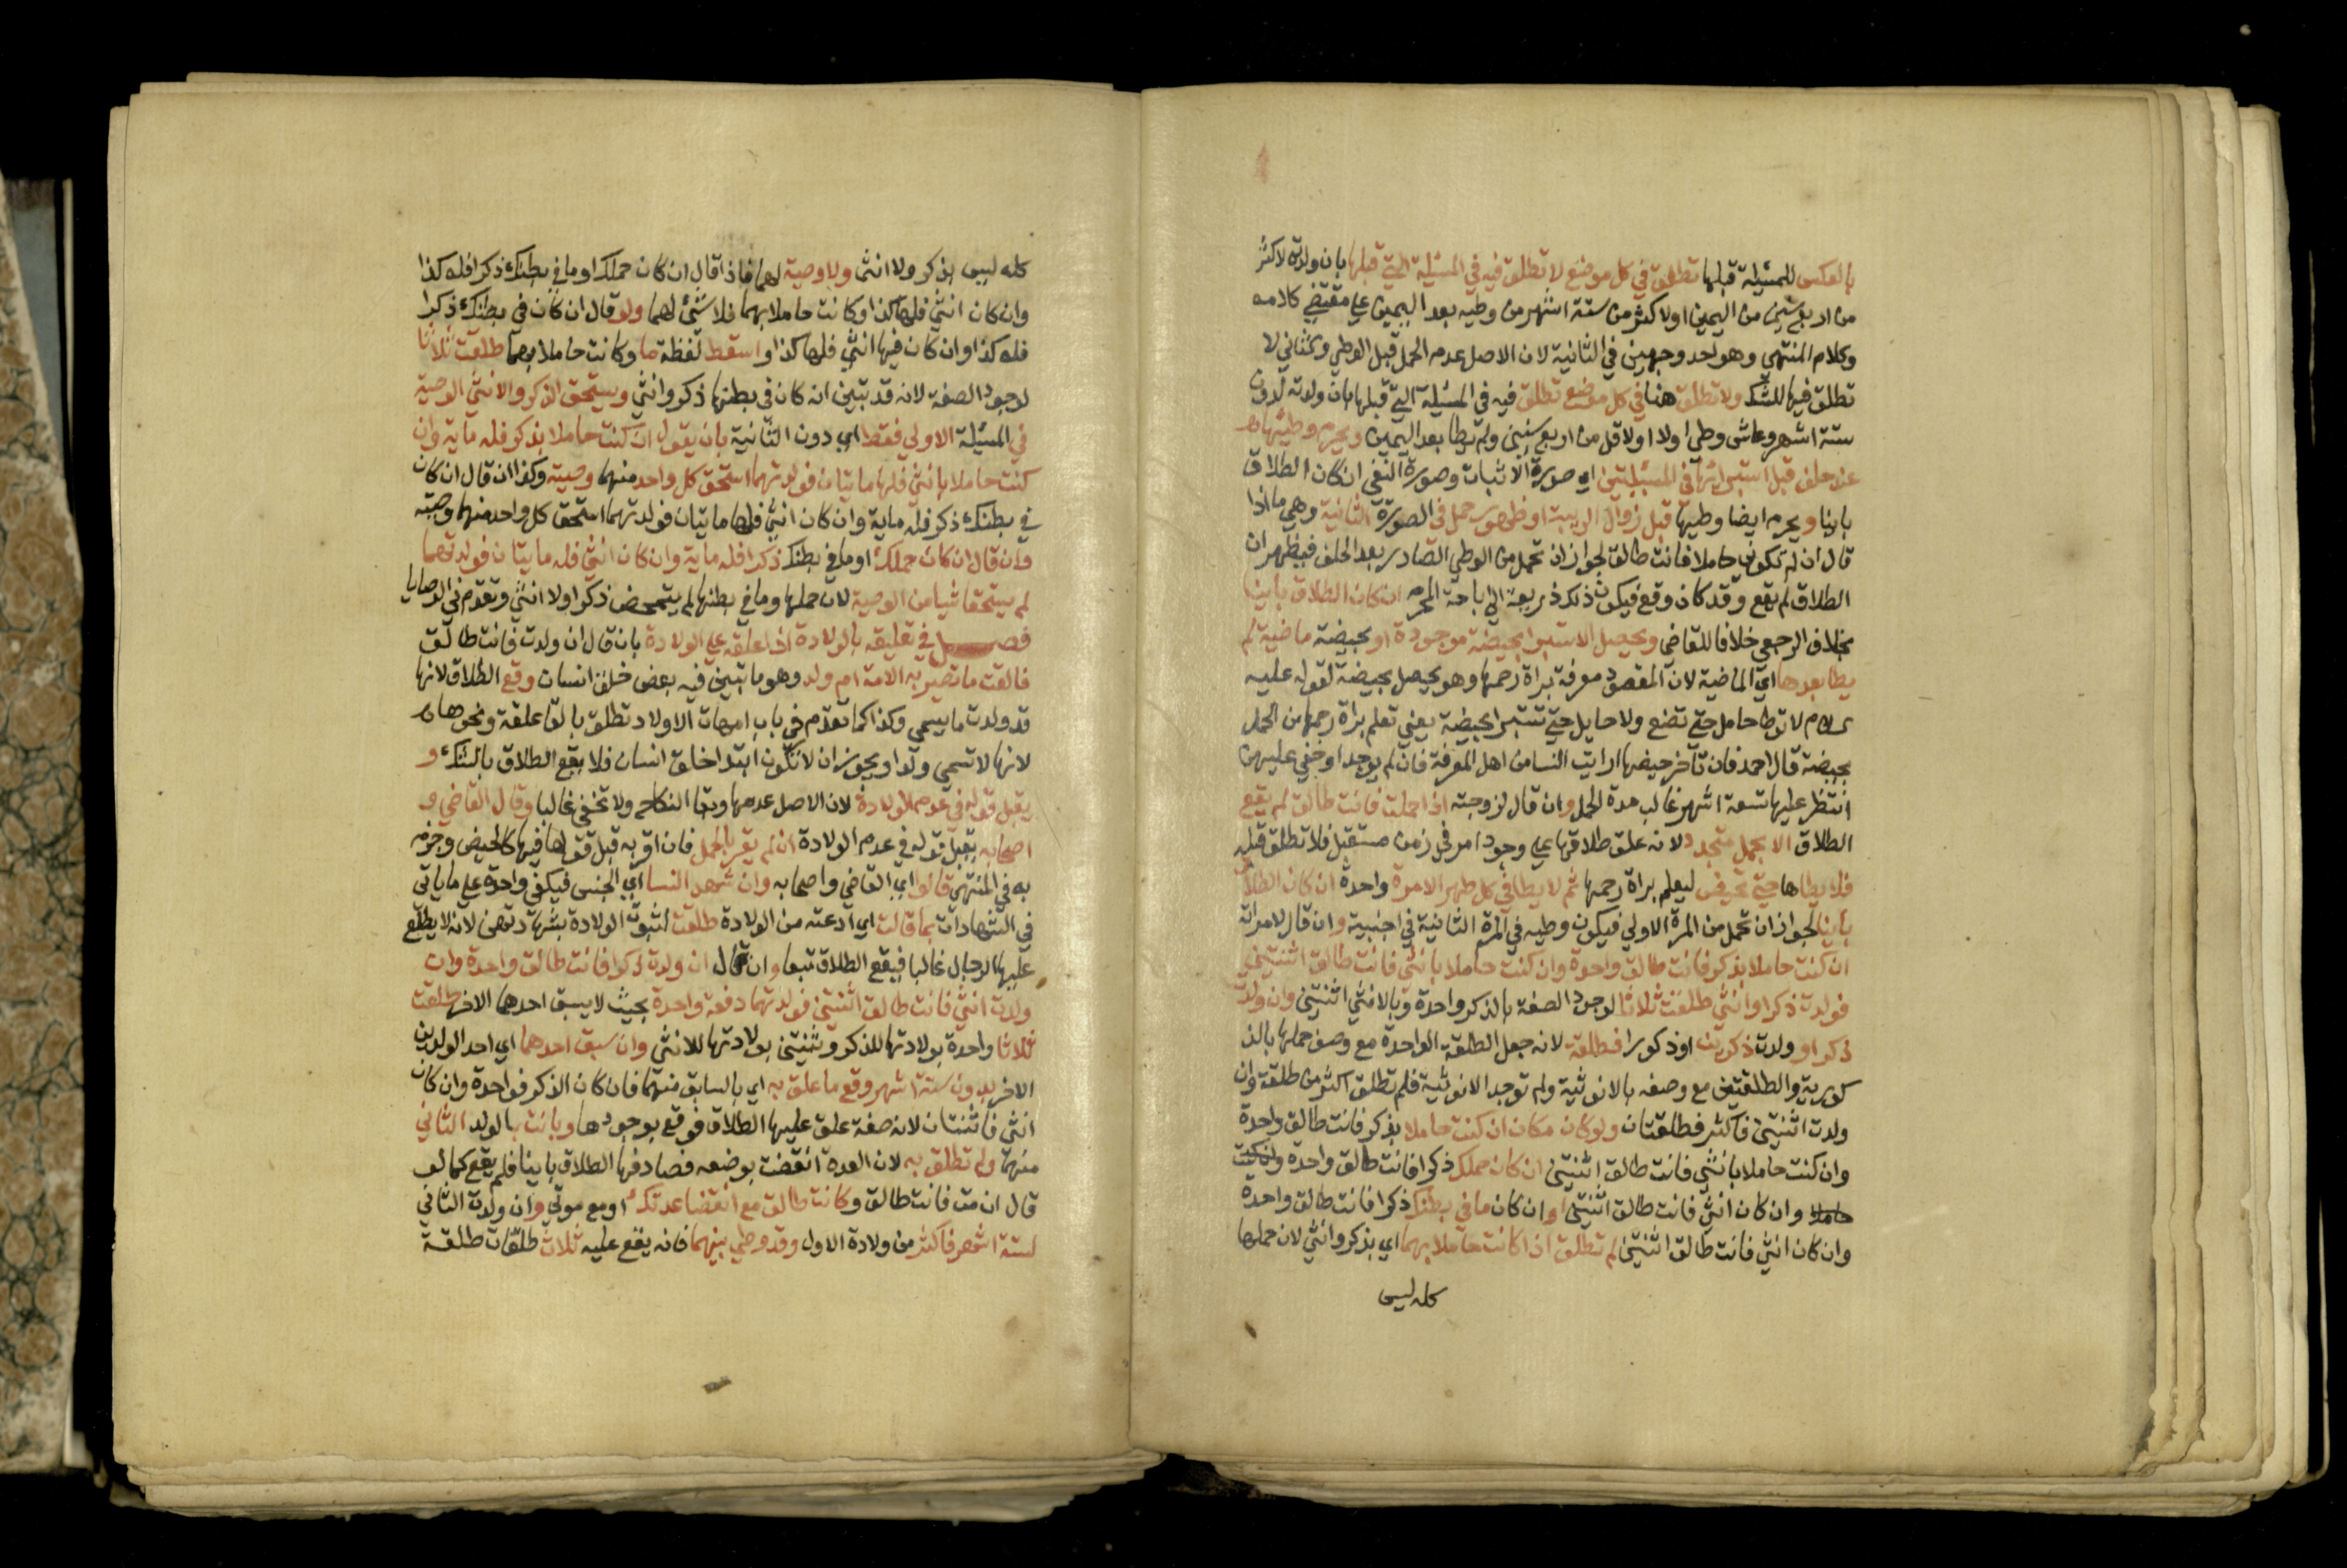 بالعكس للمسئلة قبلها تطلق في كل موضع لا تطلق فيه في المسئلة التي قبلها بان ولدته لاكثر
من اربع سنين من اليمين او لاكثر من ستة اشهر من وطيه بعد اليمين علي مقتضي كلامه
وكلام المنتهي وهو احد وجهين في الثانية لان الاصل عدم الحمل قبل الوطي والثاني لا
تطلق فيها للشك ولا تطلق هنا في كل موضع تطلق فيه في المسئلة التي قبلها بان ولدته لدون
ستة اشهر وعاش وطي اولا او لاقل من اربع سنين ولم يطا بعد اليمين ويحرم وطئها
عند حلف قبل استبرائها في المسئلتين اي صورة الاثبات وصورة النفي ان كان الطلاق
باينا ويحرم ايضا وطيها قبل زوال الريبة او ظهور حمل في الصورة الثانية وهي ما اذا
قال ان لم تكوني حاملا فانت طالق لجواز ان تحمل من الوطي الصادر بعد الحلف فيظهر ان
الطلاق لم يقع وقد كان وقع فيكون ذلك ذريعة الي اباحة المحرم ان كان الطلاق باينا
بخلاف الرجعي خلافا للقاضي ويحصل الاستبرا بحيضة موجودة او بحيضة ماضية لم
يطا بعدها اي الماضية لان المقصود معرفة براة رحمها وهو يحصل بحيضة لقوله عليه
السلام لا توطا حامل حتي تضع ولا حايل حتي تستبرا بحيضة يعني تعلم براة رحمها من الحمل
بحيضة قال احمد فان تاخر حيضها اراءيت النسا من اهل المعرفة فان لم يوجد او خفي عليهن
انتظر عليها تسعة اشهر غالب مدة الحمل وان قال لزوجته اذا حملت فانت طالق لم يقع
الطلاق الا بحمل متجدد لانه علق طلاقها علي وجود امر في زمن مستقبل فلا تطلق قبله
فلا يطاها حتي تحيض ليعلم براة رحمها ثم لا يطا في كل طهر الا مرة واحدة ان كان الطلاق
باينا لجواز ان تحمل من المرة الاولي فيكون وطيه في المرة الثانية في اجنبية وان قال لامراته
ان كنت حاملا بذكر فانت طالق واحدة وان كنت حاملا بانثي فانت طالق اثنتين
فولدت ذكرا وانثي طلقت ثلاثا لوجود الصفة بالذكر واحدة وبالانثي اثنتين وان ولدت
ذكرا او ولدت ذكرين او ذكورا فطلقة لانه جعل الطلقة الواحدة مع وصف حملها بالذ
كورية والطلقتين مع وصفه بالانوثية ولم توجد الانوثية فلم تطلق اكثر من طلقة وان
ولدت اثنتين فاكثر فطلقتان ولو كان مكان ان كنت حاملا بذكر فانت طالق واحدة
وان كنت حاملا بانثي فانت طالق اثنتين ان كان حملك ذكرا فانت طالق واحدة وان كنت
حاملا وان كان انثي فانت طالق اثنتين او ان كان ما في بطنك ذكرا فانت طالق واحدة
وان كان انثي فانت طالق اثنتين لم تطلق اذا كانت حاملا بهما اي بذكر وانثي لان حملها
كله ليس
كله ليس بذكر ولا انثي ولا وصية لهما فاذا قال ان كان حملك او ما في بطنك ذكرا فله كذا
وان كان انثي فلها كذا وكانت حاملا بهما فلا شئ لهما ولو قال ان كان في بطنك ذكرا
فله كذا وان كان فيها انثي فلها كذا او اسقط لفظة ما وكانت حاملا بهما طلقت ثلاثا
لوجود الصفة لانه قد تبين ان كان في بطنها ذكر وانثي ويستحق الذكر والانثي الوصية
في المسئلة الاولي فقط اي دون الثانية بان يقول ان كنت حاملا بذكر فله ماية وان
كنت حاملا بانثي فلها مايتان فولدتهما استحق كل واحد منهما وصيته وكذا ان قال ان كان
في بطنك ذكر فله ماية وان كان انثي فلها مايتان فولدتهما استحق كل واحد منهما وصيته
وان قال ان كان حملك او ما في بطنك ذكرا فله ماية وان كان انثي فله مايتان فولدتهما
لم يستحقا شيا من الوصية لان حملها وما في بطنها لم يتمحض ذكرا ولا انثي وتقدم في الوصايا
فصل في تعليقه بالولادة اذا علقه علي الولادة بان قال ان ولدت فانت طالق
فالقت ما تصير به الامة ام ولد وهو ما تبين فيه بعض خلق انسان وقع الطلاق لانها
قد ولدت ما يسمي ولدا كما تقدم في باب امهات الاولاد تطلق بالقا علقة ونحوها
لانها لا تسمي ولدا ويجوز ان لا تكون ابتدا خلق انسان فلا يقع الطلاق بالشك و
يقبل قوله في عدم الولادة لان الاصل عدمها وبقا النكاح ولا تخفي غالبا وقال القاضي و
اصحابه يقبل قوله في عدم الولادة ان لم يقر بالحمل فان اقر به قبل قولها فيها كالحيض وجزم
به في المنتهي قالوا اي القاضي واصحابه وان شهد النسا اي الجنس فيكفي واحدة علي ما ياتي
في الشهادات بما قالت اي ادعته من الولادة طلقت لثبوت الولادة بشهادتهن لانه لا يطلع
عليها الرجال غالبا فيقع الطلاق تبعا وان قال ان ولدت ذكرا فانت طالق واحدة وان
ولدت انثي فانت طالق اثنتين فولدتهما دفعة واحدة بحيث لا يسبق احدهما الاخر طلقت
ثلاثا واحدة بولادتها للذكر وثنتين بولادتها للانثي وان سبق احدهما اي احد الولدين
الاخر بدون ستة اشهر وقع ما علق به اي بالسابق منهما فان كان الذكر فواحدة وان كان
انثي فاثنتان لانه صفة علق عليها الطلاق فوقع بوجودها وبانت بالولد الثاني
منهما ولم تطلق به لان العدة انقضت بوضعه فصادفها الطلاق باينا فلم يقع كما لو
قال ان مت فانت طالق وكانت طالق مع انقضا عدتك او مع موتي وان ولدت الثاني
لستة اشهر فاكثر من ولادة الاول وقد وطي بينهما فانه يقع عليه ثلاث طلقات طلقة